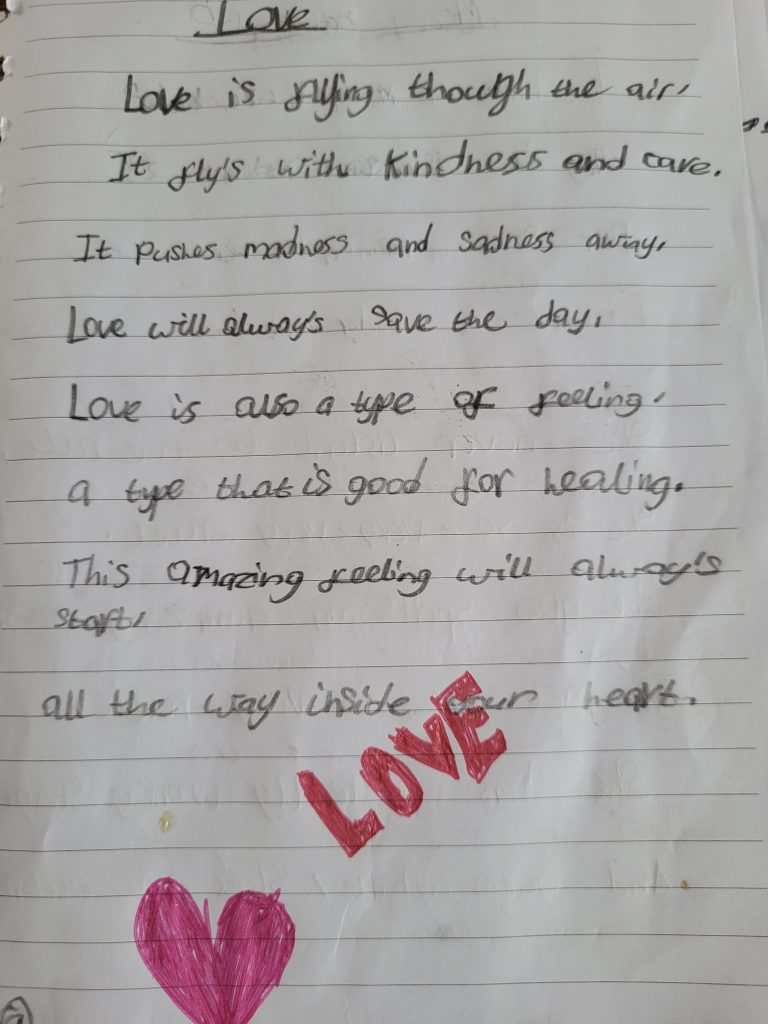 Love
Love is flying though the air,
It fly's with kindness and care.
It pushes madness and sadness away,
Love will alway's save the day,
Love is also a type of feeling,
a type that is good for healing.
This amazing feeling will alway's
start,
all the way inside your heart.
LOVE